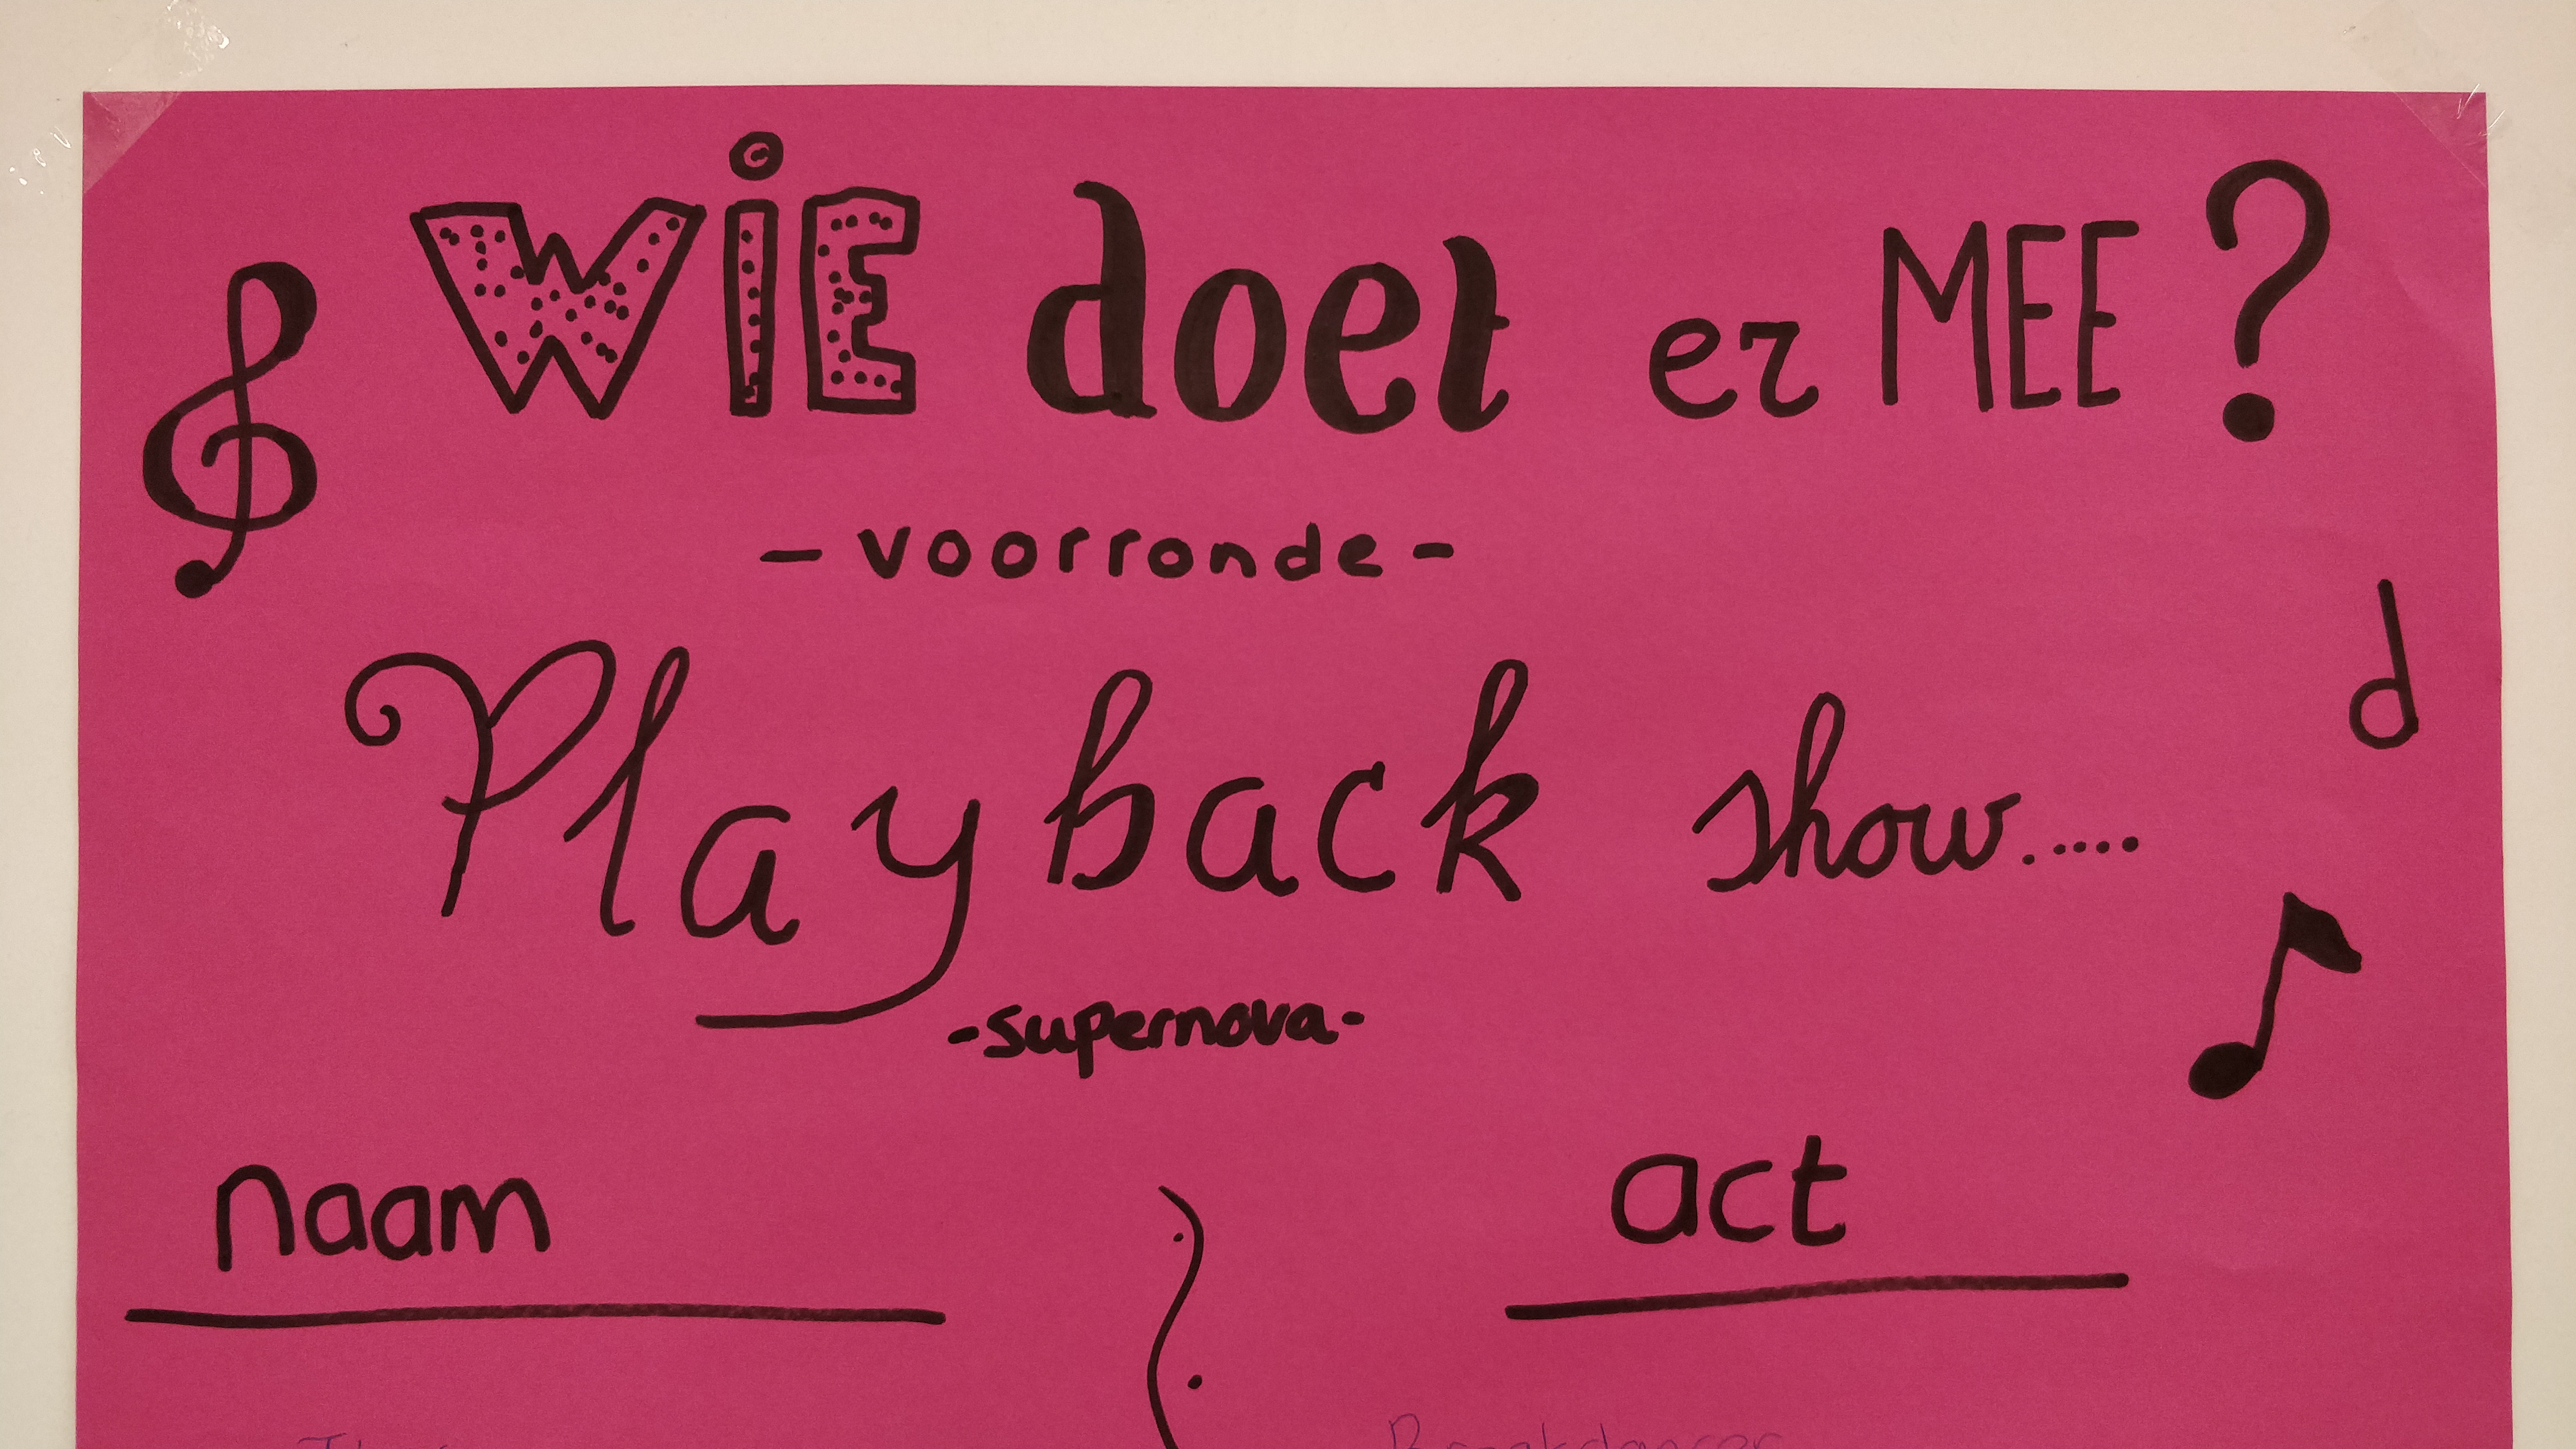 WiE doet er MEE?
- voorronde -
Playback show.....
- supernova -
naam act